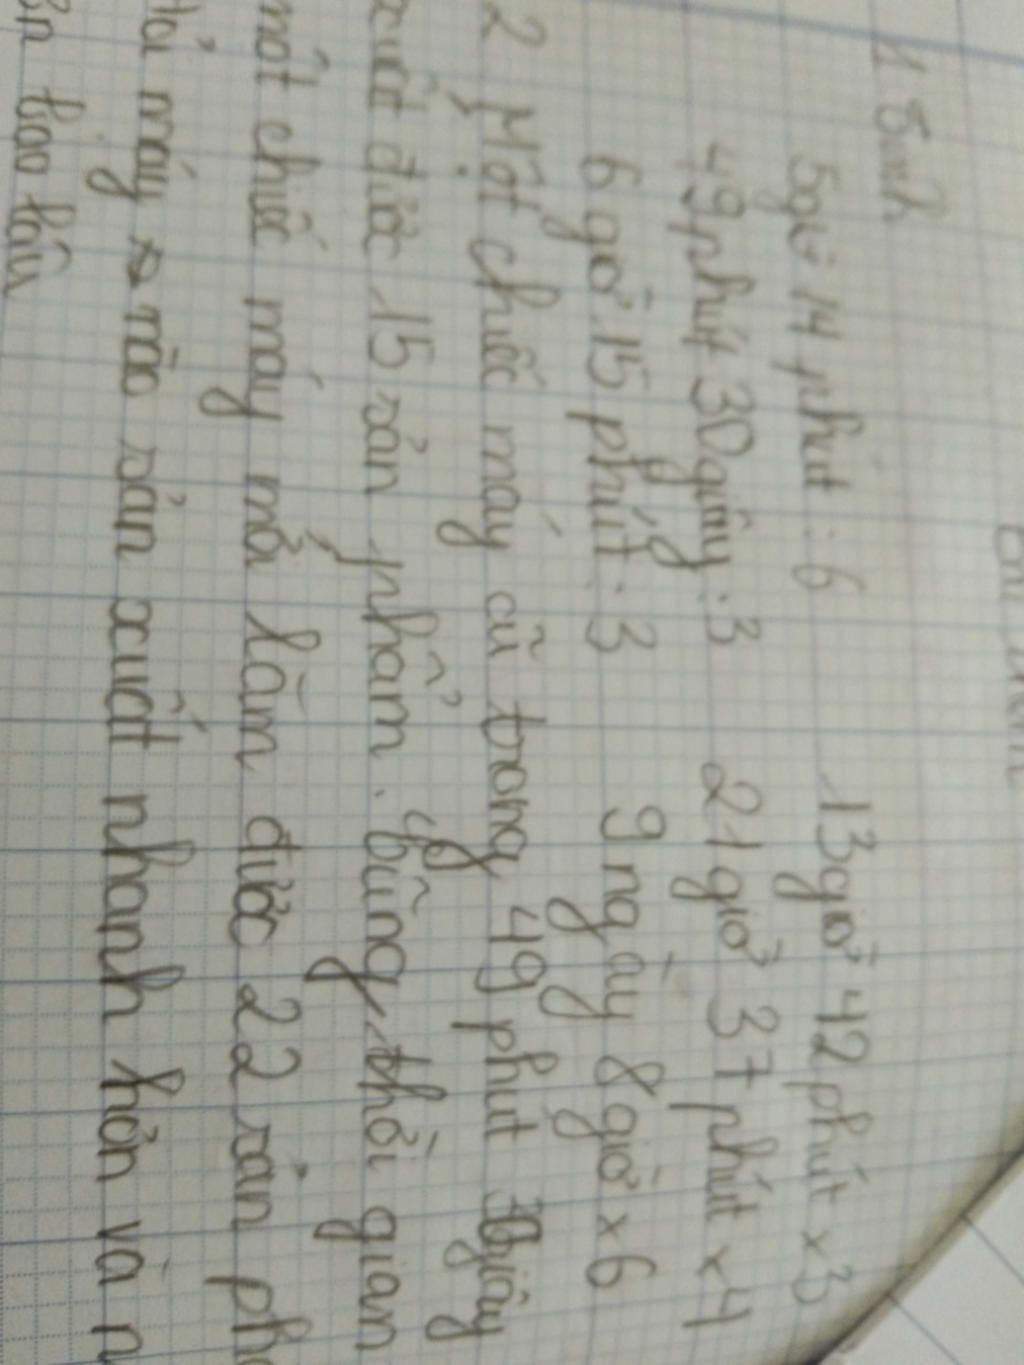 1 Tính
5giờ 14 phút : 6 13giờ 42 phút x 3
49phút 30giây : 3 21giờ 37 phút x 4
6 giờ 15 phút : 3 9 ngày 8 giờ x 6
2 Một chiếc máy cũ trong 49 phút 30giây
xuất được 15 sản phẩm. cũng thời gian
một chiếc máy mới làm được 22 sản ph
Hỏi máy nào sản xuất nhanh hơn và n
ơn bao lâu